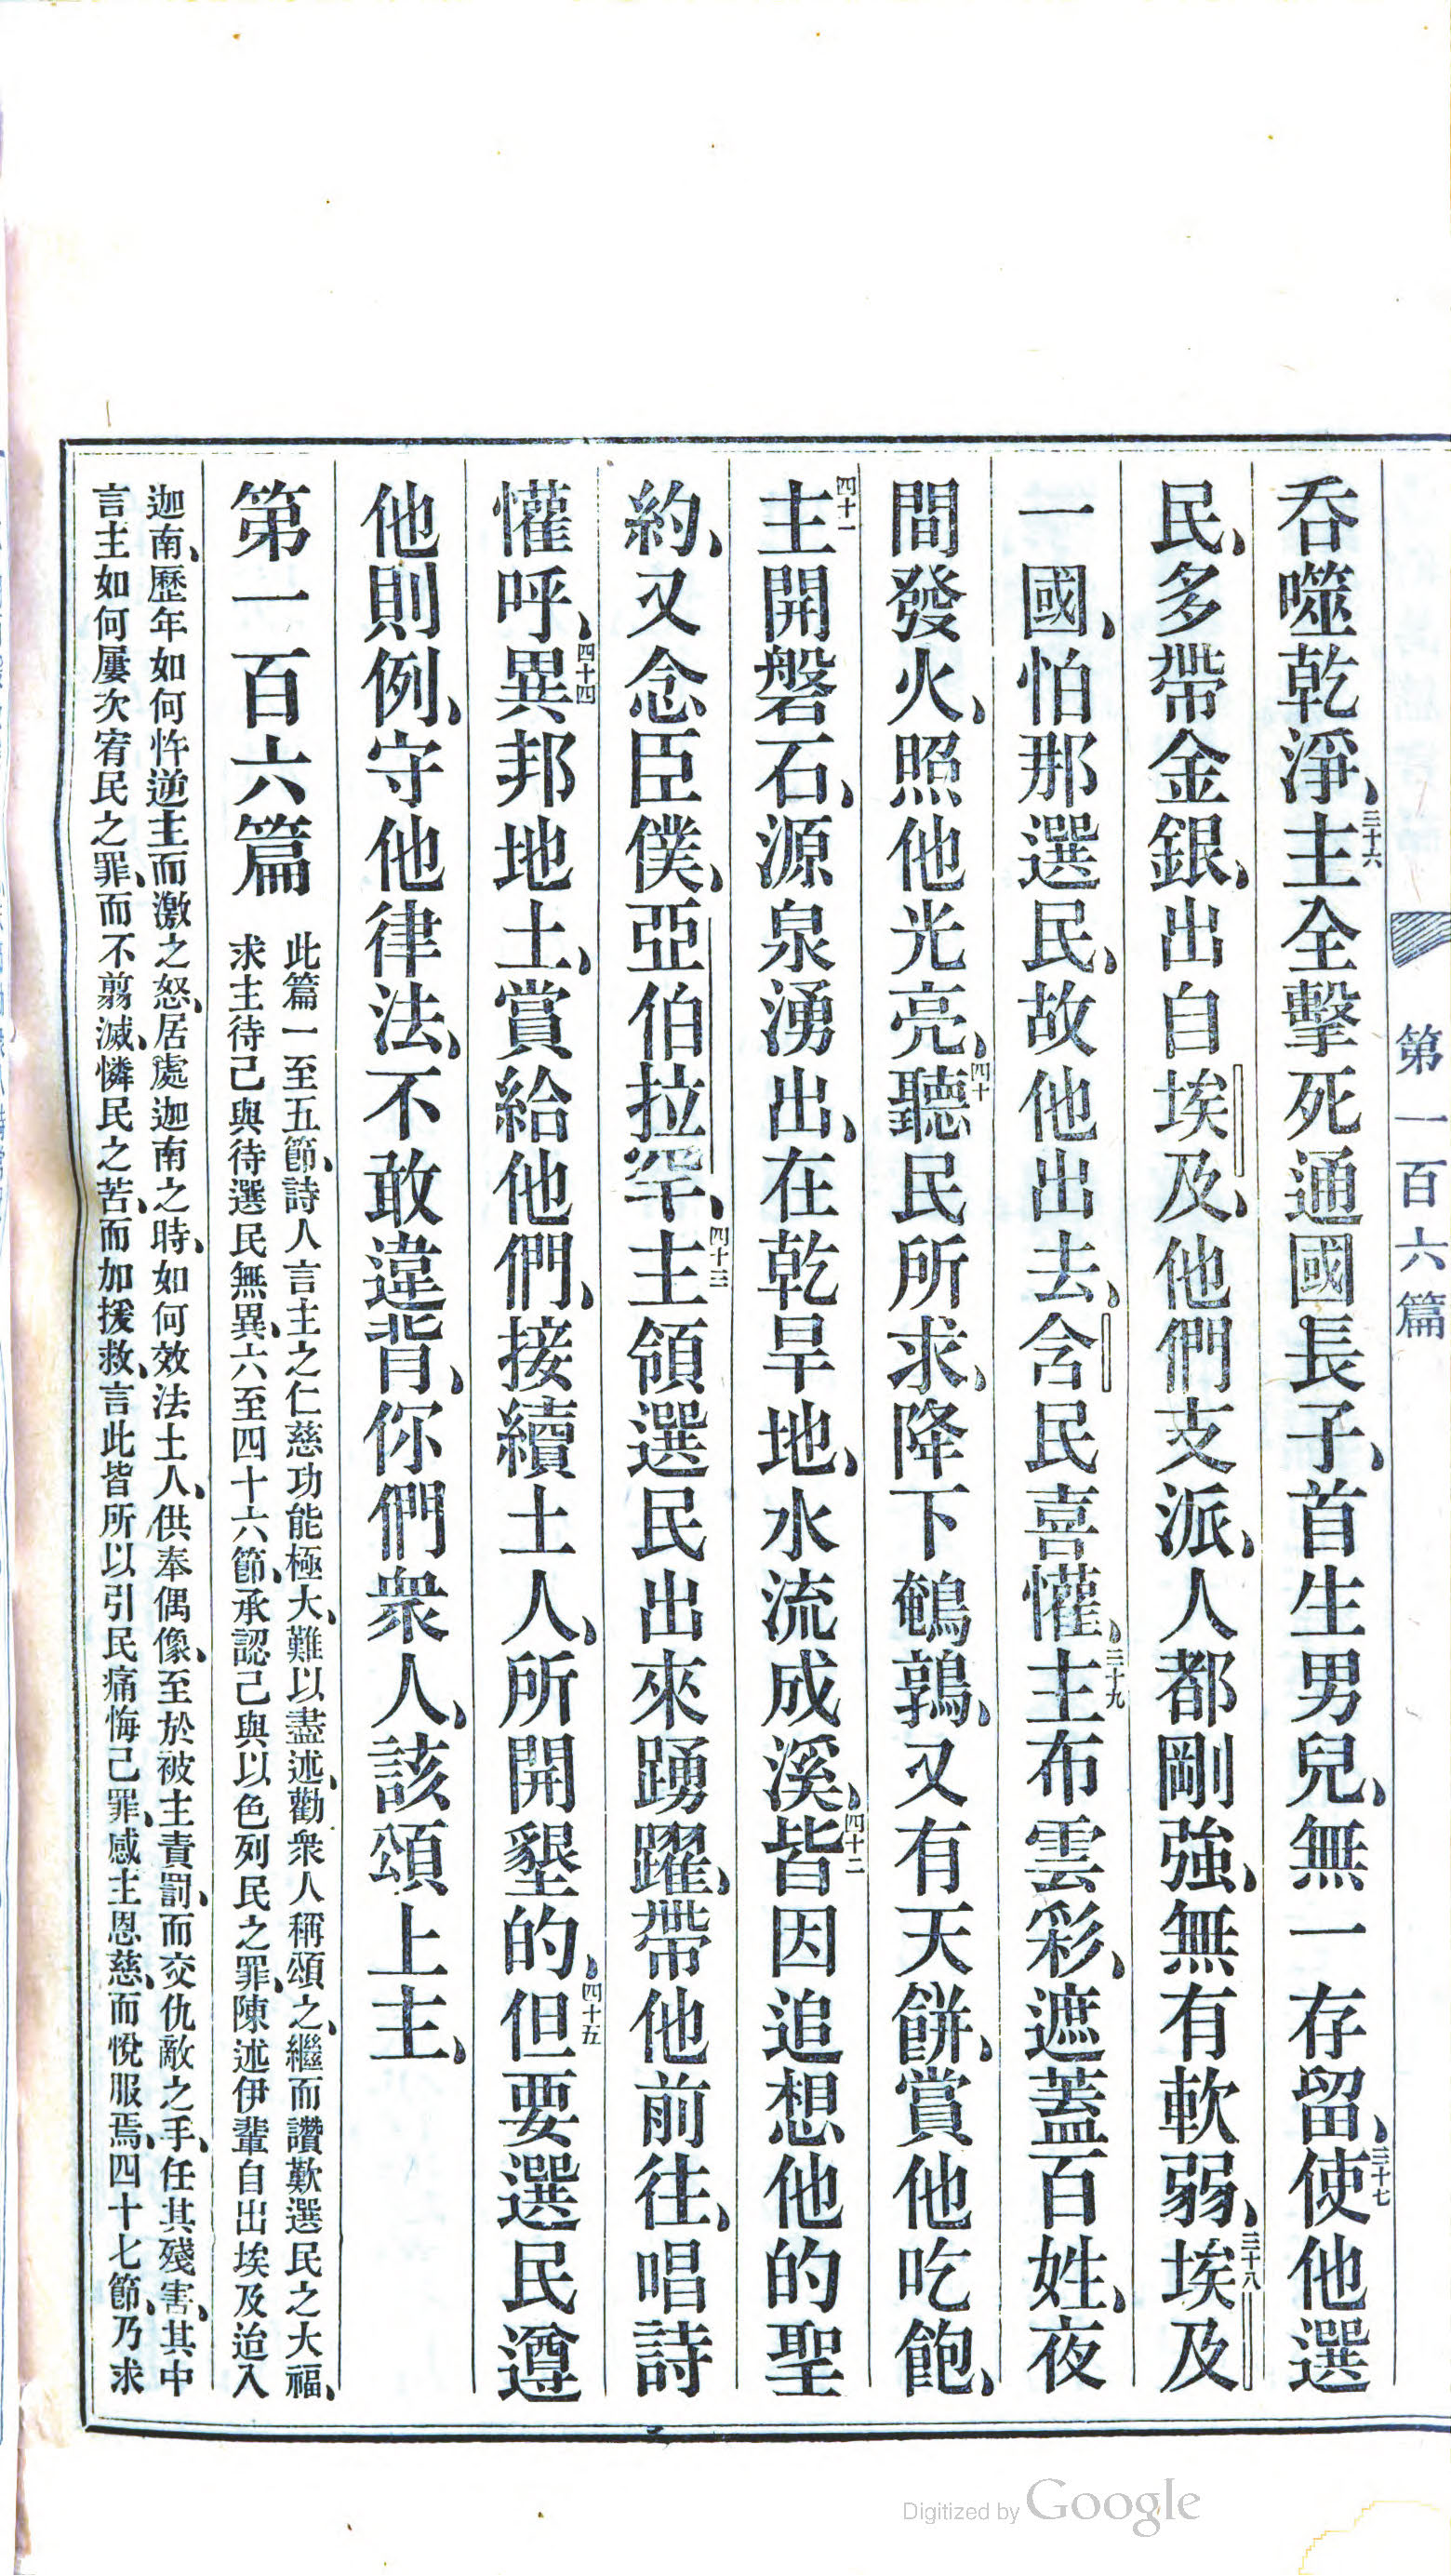 第一百六篇
吞噬乾淨、三十六主全擊死通國長子、首生男兒、無一存留、三十七使他選
民、多帶金銀、出自埃及、他們支派、人都剛強、無有軟弱、三十八埃及
一國、怕那選民、故他出去、含民喜懽、三十九主布雲彩、遮蓋百姓、夜
間發火、照他光亮、四十聽民所求、降下鵪鶉、又有天餅、賞他吃飽、
四十一主開磐石、源泉湧出、在乾旱地、水流成溪、四十二皆因追想他的聖
約、又念臣僕、亞伯拉罕、四十三主領選民出來踴躍、帶他前往、唱詩
懽呼、四十四異邦地土、賞給他們、接續土人、所開墾的、四十五但要選民遵
他則例、守他律法、不敢違背、你們衆人、該頌上主、
第一百六篇
此篇一至五節、詩人言主之仁慈功能極大、難以盡述、勸衆人稱頌之、繼而讚歎選民之大福、
求主待己與待選民無異、六至四十六節、承認己與以色列民之罪、陳述伊輩自出埃及迨入
迦南、歷年如何忤逆主而激之怒、居處迦南之時、如何效法土人、供奉偶像、至於被主責罰、而交仇敵之手、任其殘害、其中
言主如何屢次宥民之罪、而不翦滅、憐民之苦、而加援救、言此皆所以引民痛悔己罪、感主恩慈、而悅服焉、四十七節、乃求
Digitized by Google